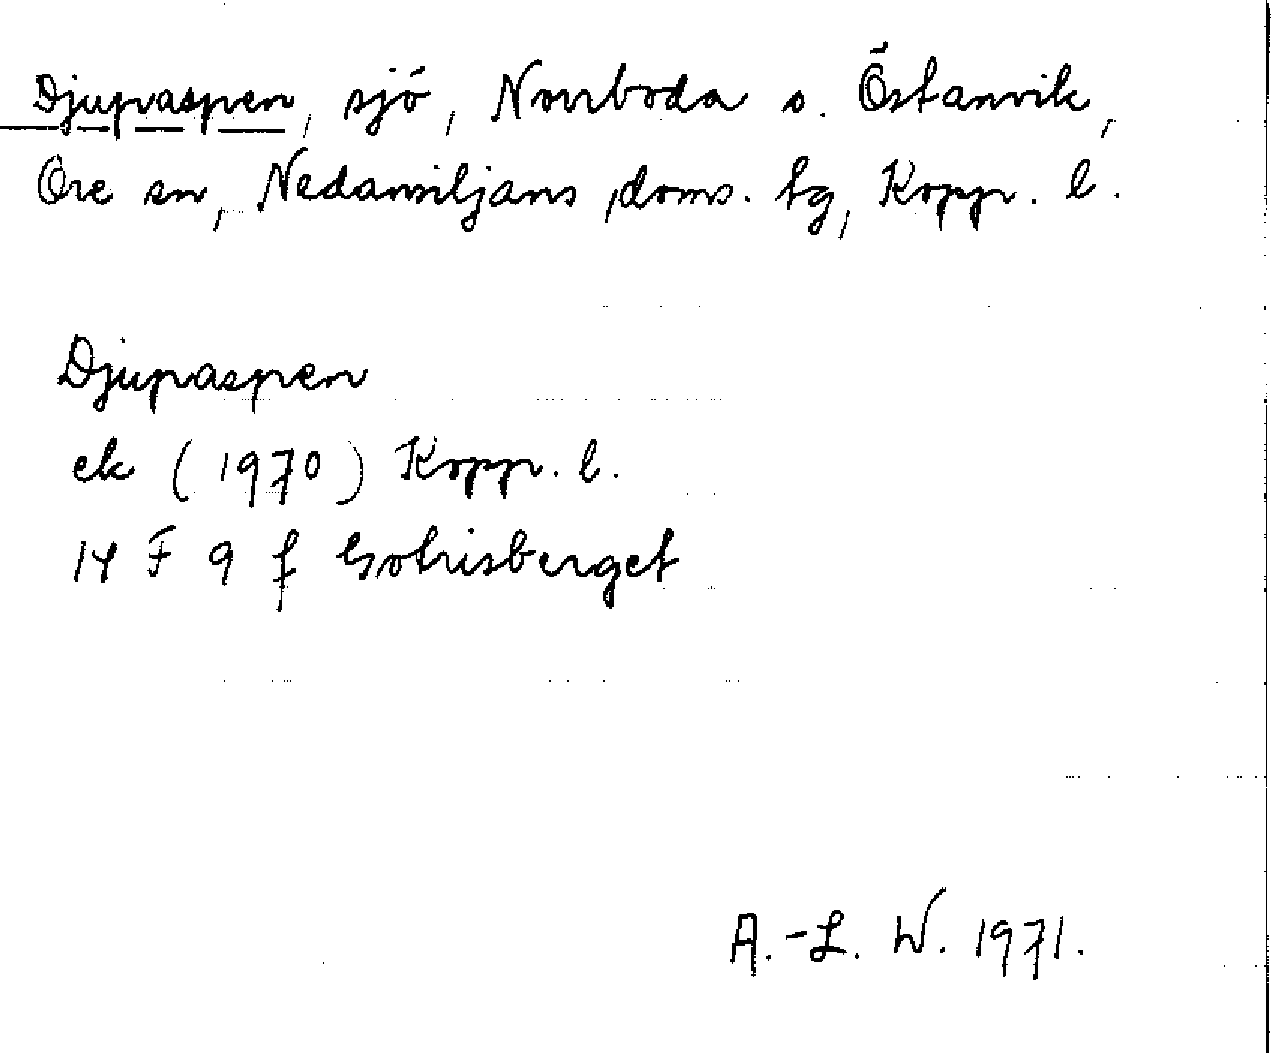 Djupaspen, sjö, Norrboda o. Östanvik,
Ore sn, Nedansiljans doms. tg, Kopp. l.
Djupaspen
ek (1970) Kopp. l.
14 F 9 f Gotrisberget
A.-L. W. 1971.